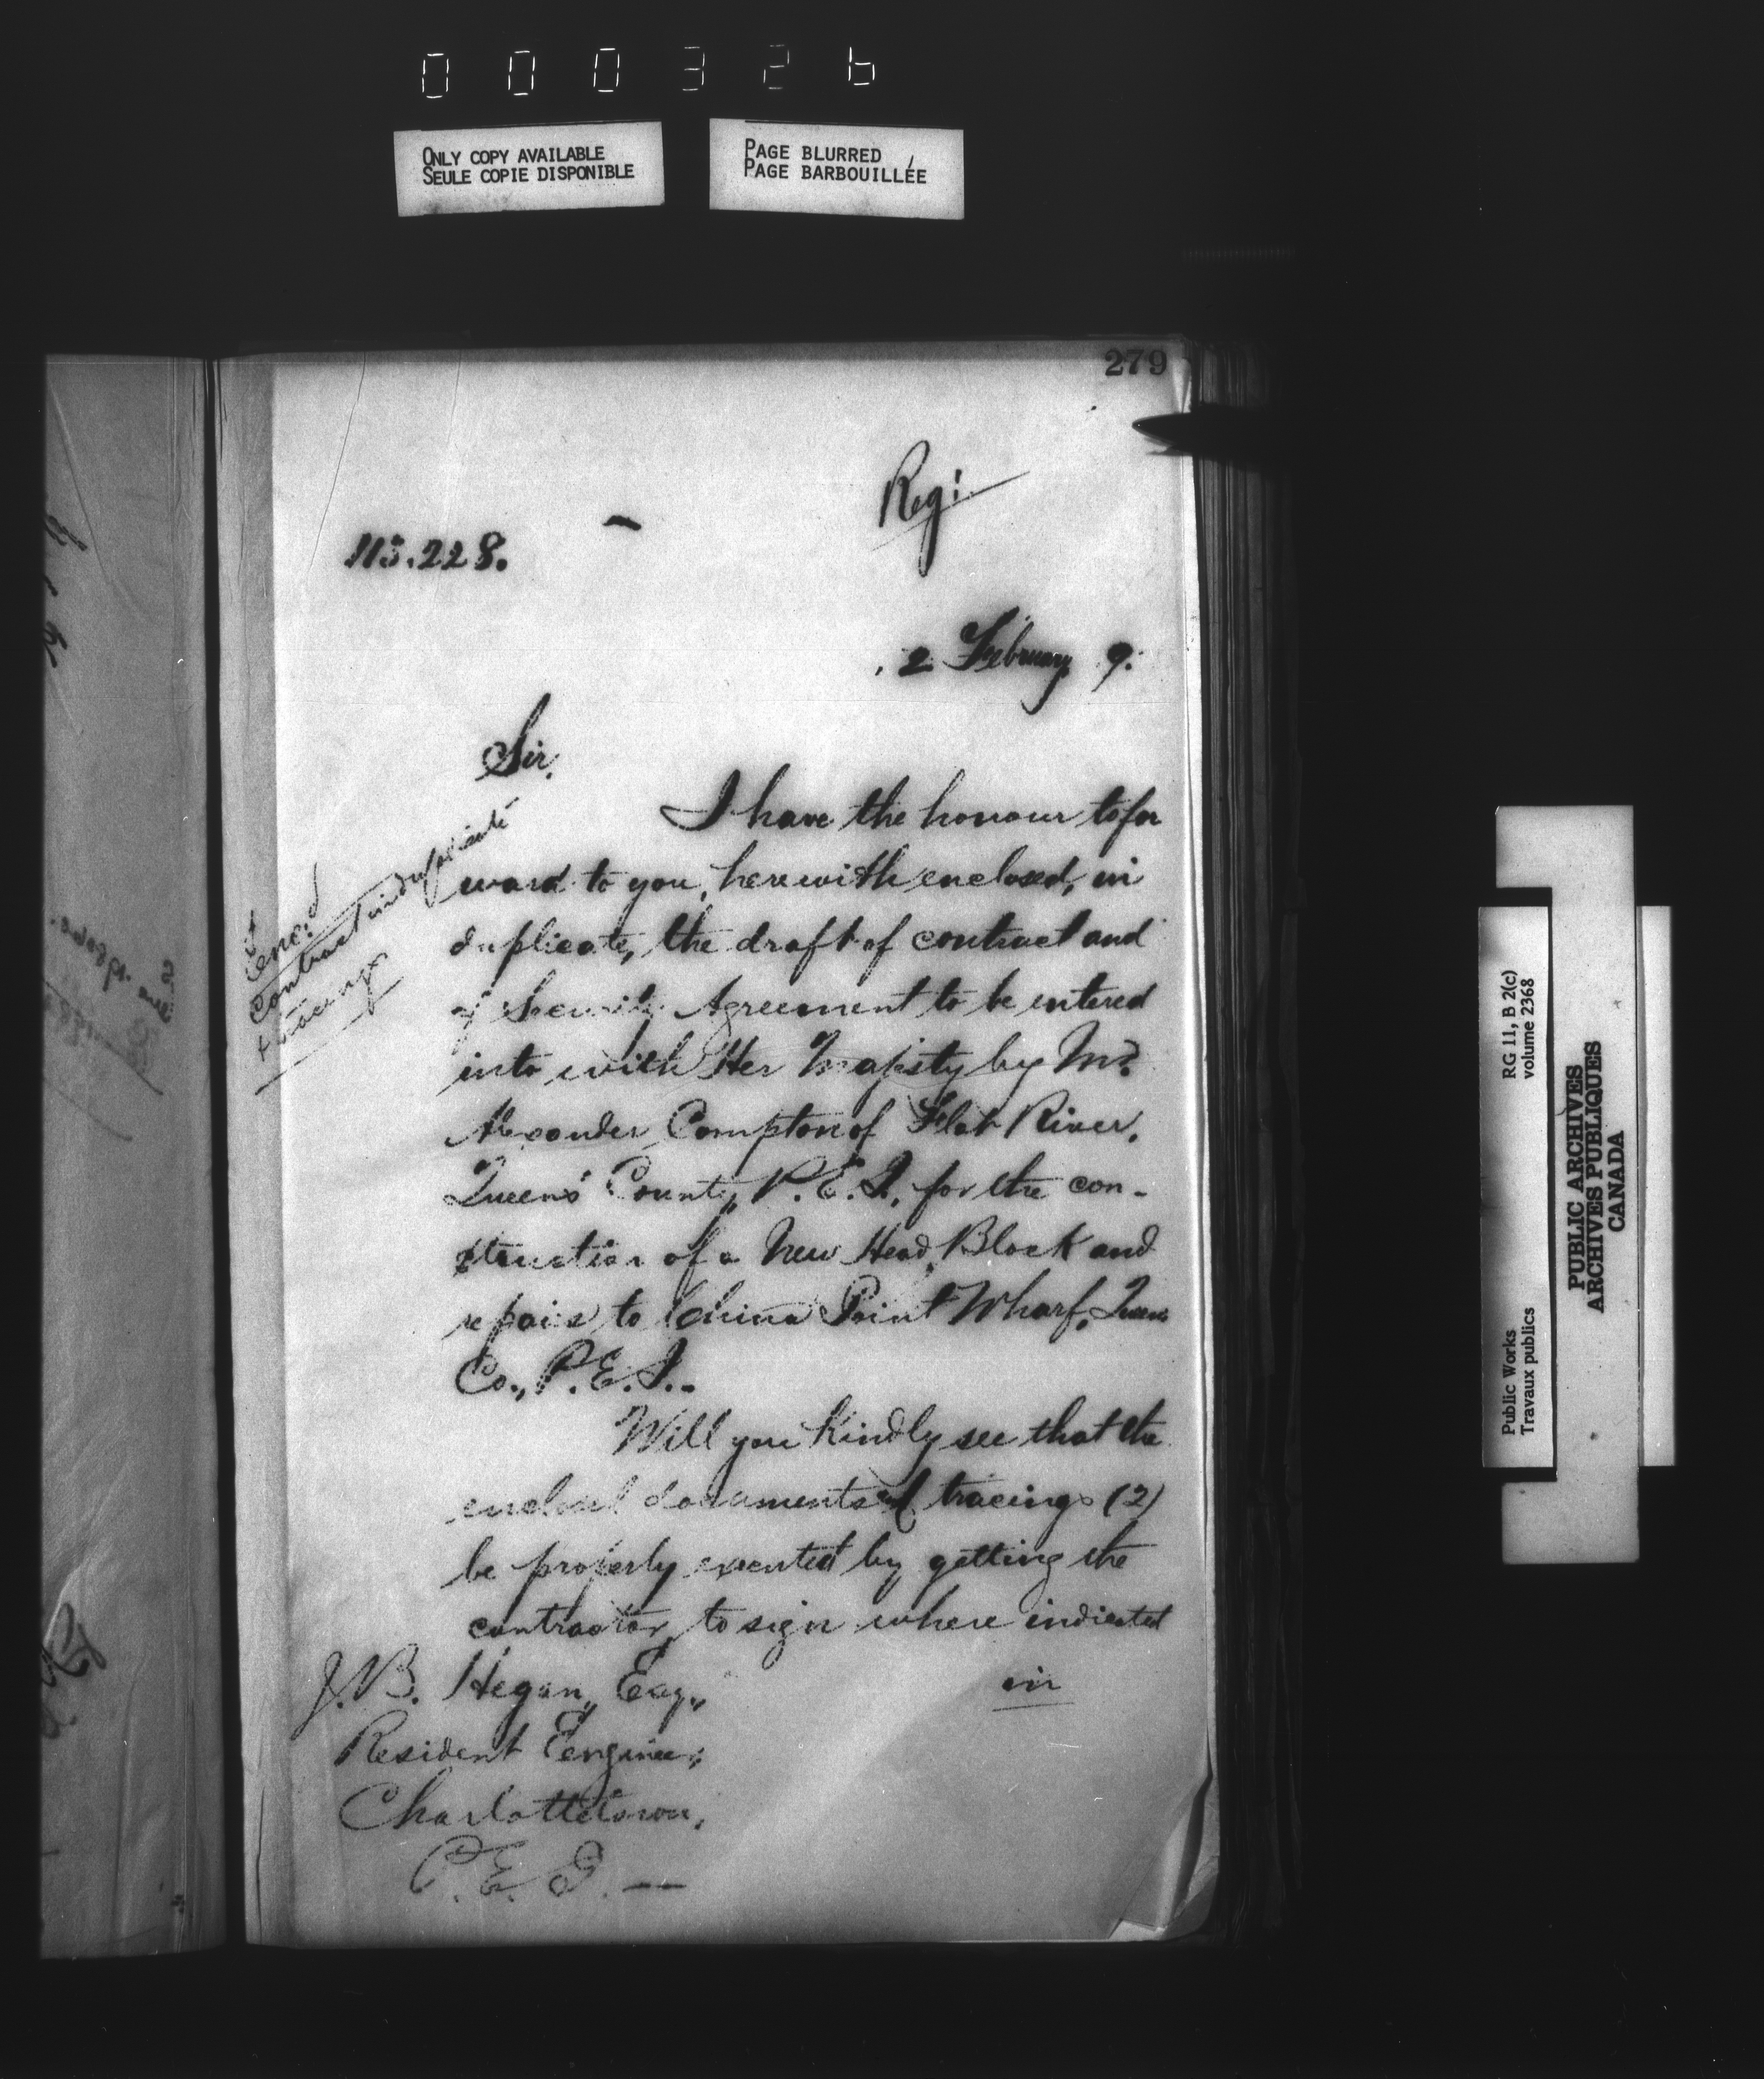 000326
ONLY COPY AVAILABLE
SEULE COPIE DISPONIBLE
PAGE BLURRED
PAGE BARBOUILLÉE
279
Reg:
115.228.
2 February 9.
Sir,
I have the honour to for
ward to you, herewith enclosed, in
duplicate, the draft of contract and
of Security Agreement to be entered
into with Her Majesty by Mr.
Alexander Compton of Flat River,
Queens' County, P.E.I., for the con-
struction of a New Head Block and
repairs to China Point Wharf, Queens
Co., P.E.I.-
Will you kindly see that the
enclosed documents and tracings (2)
be properly executed by getting the
contractor, to sign where indicated
in
J.B. Hegan, Esq.,
Resident Engineer,
Charlottetown,
P.E.I. —
Enc:d
Contract in duplicate
+ tracings
Public Works
Travaux publics
RG 11, B 2(c)
volume 2368
PUBLIC ARCHIVES
ARCHIVES PUBLIQUES
CANADA